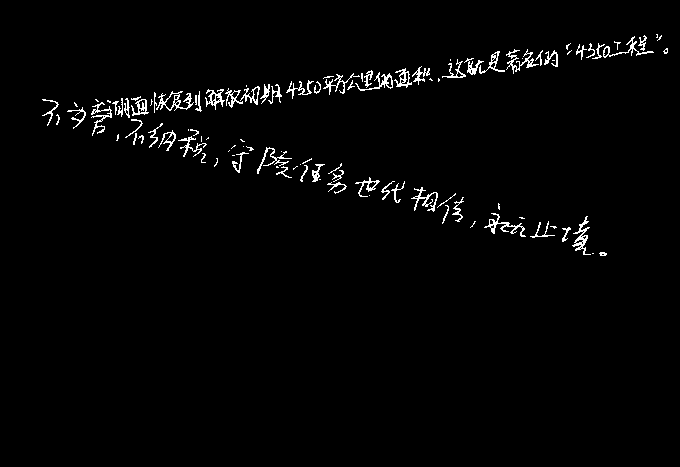 湖面恢复到解放初期4350平方公里的面积,这就是著名的“4350工程”。
不交官,不纳税,守陵任务世代相传,永无止境。